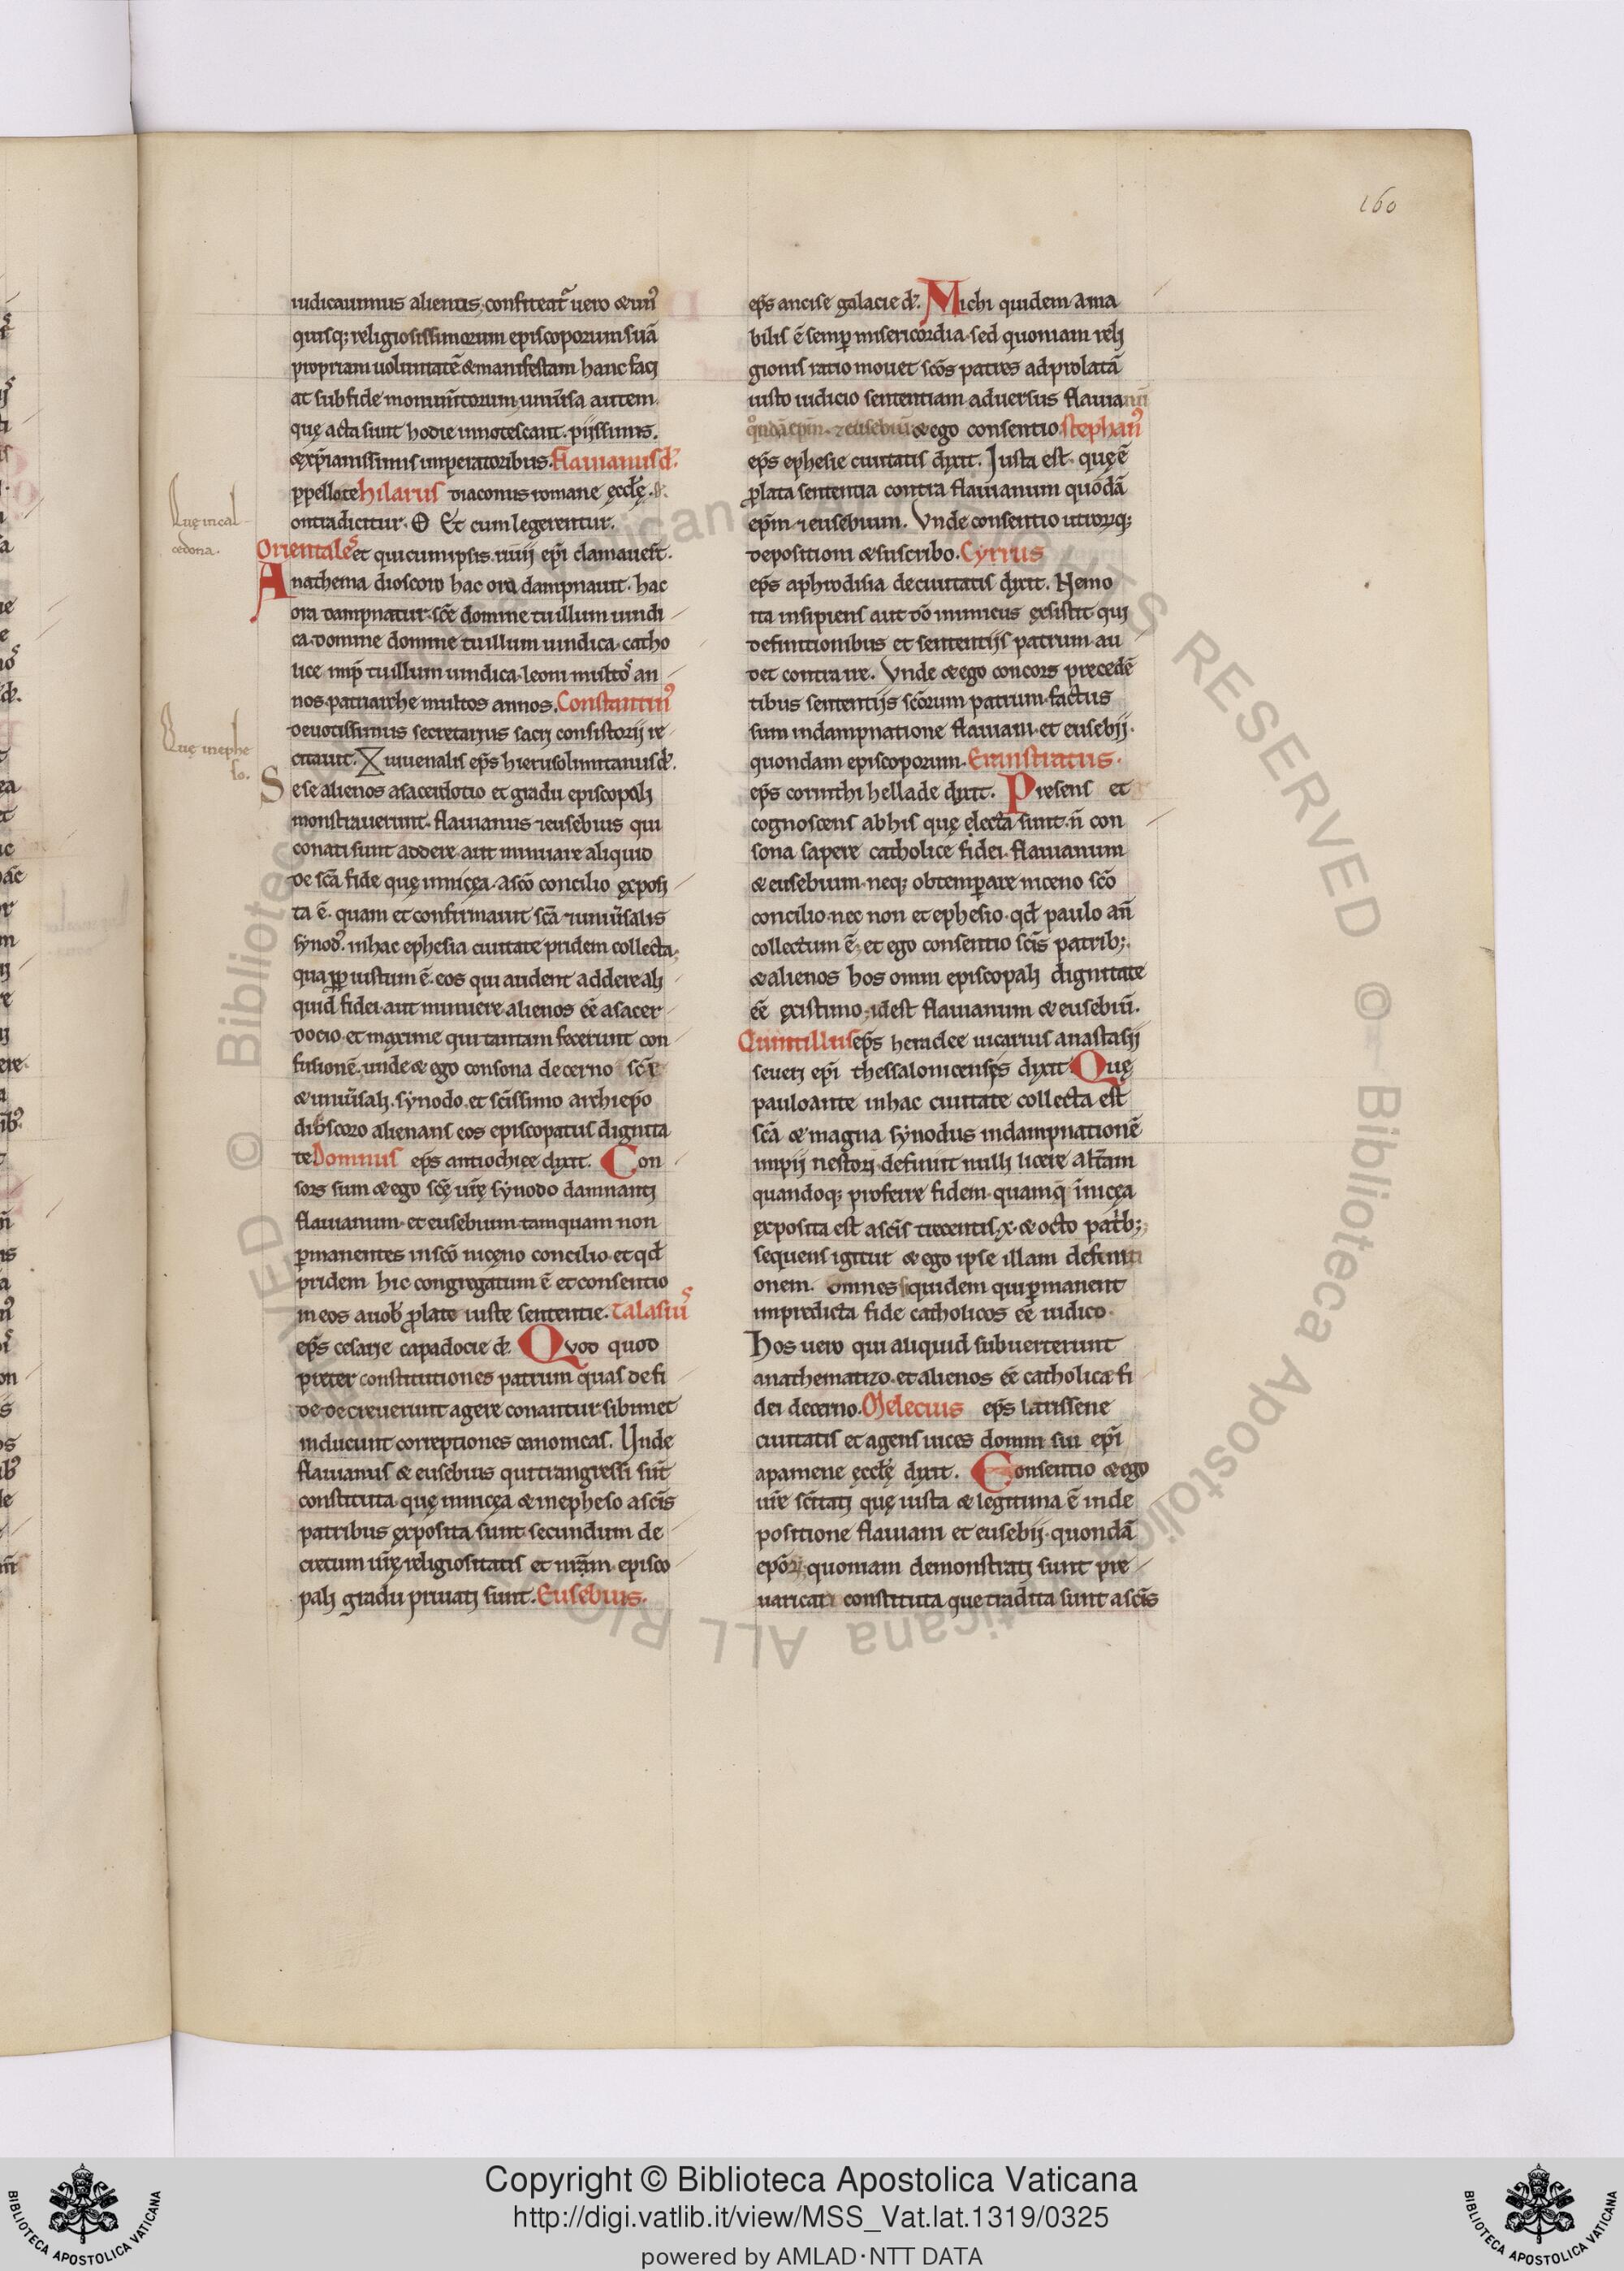 160
iudicauimus alienus, confiteat᷑ uero & un᷒
quisq; religiosissimorum episcoporum suā
propriam uoluntatē & manifestam hanc faci
at sub fide monum̄torum, uniu̅sa autem
quę acta sunt hodie innotescant. piissimis.
& xp̄ianissimis imperatoribus. Flauianus d᷒.
ppello te hilarus diaconus romane ęcclę̄.
ontradicitur. Et cum legerentur.
Orientales et qui cum ipsis. uiii ep̄i clamauer̄t.
Anathema dioscoro hac ora dampnauit. hac
ora dampnatur. sc̄e domine tu illum uindi
ca. domine domine tu illum uindica. catho
lice imp̄ tu illum uindica. leoni multo᷒ an
nos. patriarche multos annos. Constantin᷒
deuotissimus secretarius sacri consistorij re
citauit. iuuenalis ep̄s hierusolimitanus d᷒.
Sese alienos a sacerdotio et gradu episcopali
monstrauerunt. flauianus & eusebius qui
conati sunt addere aut minuare aliquid
de sc̄a fide quę in nicęa a sc̄o concilio ęxposi
ta ē. quam et confirmauit sc̄a & uniu̅salis
synod᷒. in hac ephesia ciuitate pridem collecta,
qua pp̄ iustum ē. eos qui audent addere ali
quid fidei aut minuere alienos eē̄ a sacer
docio. et maxime qui tantam fecerunt con
fusionē. unde & ego consona decerno sc̄e
& uniu̅sali. synodo. et sc̄issimo archiep̄o
dioscoro alienans eos episcopatus dignita
te Domnus ep̄s antiochiee dixit. Con
sors sum & ego sc̄ę ur̄ę synodo damnanti
flauianum. et eusebium tamquam non
p̄manentes in sc̄o nicęno concilio. et qd̄
pridem hic congregatum ē et consentio
in eos a uob᷒ p̄late iuste sententie. Talasiu᷒
ep̄s cesarie capadocie d᷒. Quod quod
preter constitutiones patrum quas de fi
de decreuerunt agere conantur sibimet
inducunt correptiones canonicas. Unde
flauianus & eusebius qui trangressi sūt
constituta quę in nicęa & in epheso a sc̄is
patribus ęxposita sunt secundum de
cretum ur̄ę religiositatis et nr̄am episco
pali gradu priuati sunt. Eusebius.
Quę in cal
cedona.
Quę in ephe
so.
ep̄s ancise galacie d᷒. Michi quidem ama
bilis ē semp̄ misericordia. sed quoniam reli
gionis ratio mouet sc̄os patres ad prolatā
iusto iudicio sententiam aduersus flauianū
q̊ndā ep̄m. & eusebiū & ego consentio Stephan᷒
ep̄s ephesie ciuitatis dixit. Iusta est quę ē
p̄lata sententia contra flauianum quōdā
ep̄m & eusebium. Vnde consentio utrorūq;
depositioni & suscribo. Cyrrus
ep̄s aphrodisia de ciuitatis dixit. Nemo
ita insipiens aut dō inimicus ęxsistit qui
definitionibus et sententijs patrum au
det contra ire. Vnde & ego concors precedē
tibus sententijs sc̄orum patrum. factus
sum in dampnatione flauiani. et eusebij.
quondam episcoporum. Eunistratus.
ep̄s corinthi hellade dixit. Presens et
cognoscens ab his quę electa sunt. n̄ con
sona sapere catholice fidei. flauianum
& eusebium. neq; obtemp̄are niceno sc̄o
concilio. nec non et ephesio. qd̄ paulo an̄
collectum ē. et ego consentio sc̄is patrib;.
& alienos hos omni episcopali dignitate
eē̄ ęxistimo. id est flauianum & eusebiū.
Quintillus ep̄s heradee uicarius anastasij
seueri ep̄i thessalonicensęs dixit Quę
paulo ante in hac ciuitate collecta est
sc̄a & magna synodus in dampnationē
impij nestorj definiit nulli licere alt̄am
quandoq; proferre fidem. quamq̄ ī nicęa
ęxposita est a sc̄is trecentis. x. & octo pat̄b;,
sequens igitur & ego ipse illam definiti
onem. omnes quidem qui p̄manent
in predicta fide catholicos eē iudico.
Hos uero qui aliquid subuerterunt
anathematizo. et alienos eē̄ catholica fi
dei decerno. Melecius ep̄s larissene
ciuitatis et agens uices domni sui ep̄i
apamene ęccl̄ę dixit. Consentio & ego
ur̄e sc̄itati quę iusta & legitima ē in de
positione flauiani et eusebij. quondā
ep̄oꝝ, quoniam demonstrati sunt pre
uaricati constituta que tradita sunt a sc̄is
© Biblioteca Apostolica Vaticana ALL RIGHTS RESERVED
Copyright © Biblioteca Apostolica Vaticana
http://digi.vatlib.it/view/MSS_Vat.lat.1319/0325
powered by AMLAD·NTT DATA
BIBLIOTECA APOSTOLICA VATICANA
BIBLIOTECA APOSTOLICA VATICANA